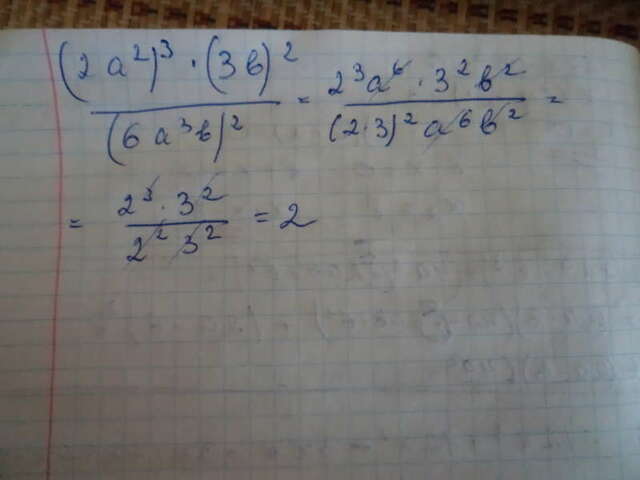 (2a²)³ · (3в)² / (6a³в)² = 2³a⁶ · 3²в² / (2·3)²a⁶в² =
= 2³ · 3² / 2² 3² = 2